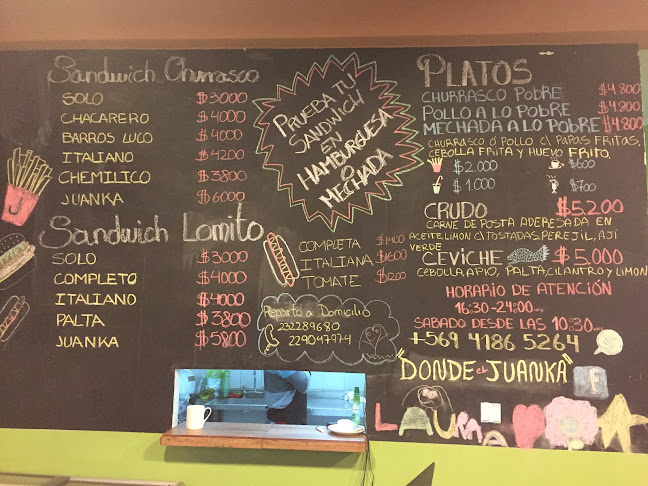 Sandwich Churrasco
SOLO $3000
CHACARERO $4000
BARROS LUCO $4000
ITALIANO $4200
CHEMILICO $3800
JUANKA $6000
Sandwich Lomito
SOLO $3000
COMPLETO $4000
ITALIANO $4000
PALTA $3800
JUANKA $5800
PRUEBA TU
SANDWICH
EN
HAMBURGUESA
O
MECHADA
COMPLETA $1400
ITALIANA $1600
TOMATE $1200
Reparto a Domicilio
232289680
229047974
PLATOS
CHURRASCO POBRE $4.800
POLLO A LO POBRE $4.800
MECHADA A LO POBRE $4.800
CHURRASCO Ó POLLO C/ PAPAS FRITAS,
CEBOLLA FRITA Y HUEVO FRITO.
$2.000 $600
$1.000 $700
CRUDO $5.200
CARNE DE POSTA ADEREZADA EN
ACEITE, LIMON C/TOSTADAS, PEREJIL, AJÍ
VERDE
CEVICHE $5.000
CEBOLLA, APIO, PALTA, CILANTRO Y LIMON
HORARIO DE ATENCIÓN
16:30-24:00
SABADO DESDE LAS 10:30
+569 4186 5264
"DONDE el JUANKA"
f